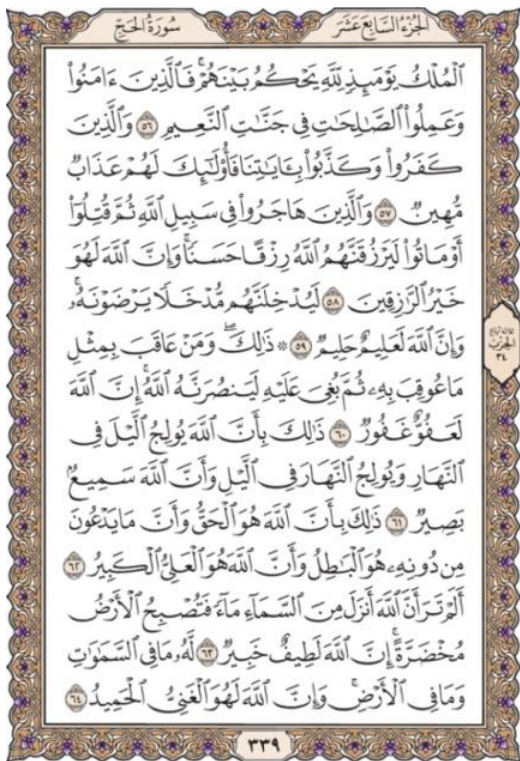 الجزء السابع عشر
سورة الحج
ٱلۡمُلۡكُ يَوۡمَئِذٖ لِّلَّهِ يَحۡكُمُ بَيۡنَهُمۡۚ فَٱلَّذِينَ ءَامَنُواْ
وَعَمِلُواْ ٱلصَّٰلِحَٰتِ فِي جَنَّٰتِ ٱلنَّعِيمِ ٥٦ وَٱلَّذِينَ
كَفَرُواْ وَكَذَّبُواْ بِـَٔايَٰتِنَا فَأُوْلَٰٓئِكَ لَهُمۡ عَذَابٞ
مُّهِينٞ ٥٧ وَٱلَّذِينَ هَاجَرُواْ فِي سَبِيلِ ٱللَّهِ ثُمَّ قُتِلُوٓاْ
أَوۡ مَاتُواْ لَيَرۡزُقَنَّهُمُ ٱللَّهُ رِزۡقًا حَسَنٗاۚ وَإِنَّ ٱللَّهَ لَهُوَ
خَيۡرُ ٱلرَّٰزِقِينَ ٥٨ لَيُدۡخِلَنَّهُم مُّدۡخَلٗا يَرۡضَوۡنَهُۥۚ
وَإِنَّ ٱللَّهَ لَعَلِيمٌ حَلِيمٞ ٥٩ ۞ ذَٰلِكَۖ وَمَنۡ عَاقَبَ بِمِثۡلِ
مَا عُوقِبَ بِهِۦ ثُمَّ بُغِيَ عَلَيۡهِ لَيَنصُرَنَّهُ ٱللَّهُۚ إِنَّ ٱللَّهَ
لَعَفُوٌّ غَفُورٞ ٦٠ ذَٰلِكَ بِأَنَّ ٱللَّهَ يُولِجُ ٱلَّيۡلَ فِي
ٱلنَّهَارِ وَيُولِجُ ٱلنَّهَارَ فِي ٱلَّيۡلِ وَأَنَّ ٱللَّهَ سَمِيعُۢ
بَصِيرٞ ٦١ ذَٰلِكَ بِأَنَّ ٱللَّهَ هُوَ ٱلۡحَقُّ وَأَنَّ مَا يَدۡعُونَ
مِن دُونِهِۦ هُوَ ٱلۡبَٰطِلُ وَأَنَّ ٱللَّهَ هُوَ ٱلۡعَلِيُّ ٱلۡكَبِيرُ ٦٢
أَلَمۡ تَرَ أَنَّ ٱللَّهَ أَنزَلَ مِنَ ٱلسَّمَآءِ مَآءٗ فَتُصۡبِحُ ٱلۡأَرۡضُ
مُخۡضَرَّةًۚ إِنَّ ٱللَّهَ لَطِيفٌ خَبِيرٞ ٦٣ لَّهُۥ مَا فِي ٱلسَّمَٰوَٰتِ
وَمَا فِي ٱلۡأَرۡضِۚ وَإِنَّ ٱللَّهَ لَهُوَ ٱلۡغَنِيُّ ٱلۡحَمِيدُ ٦٤
الحزب
٣٤
٣٣٩